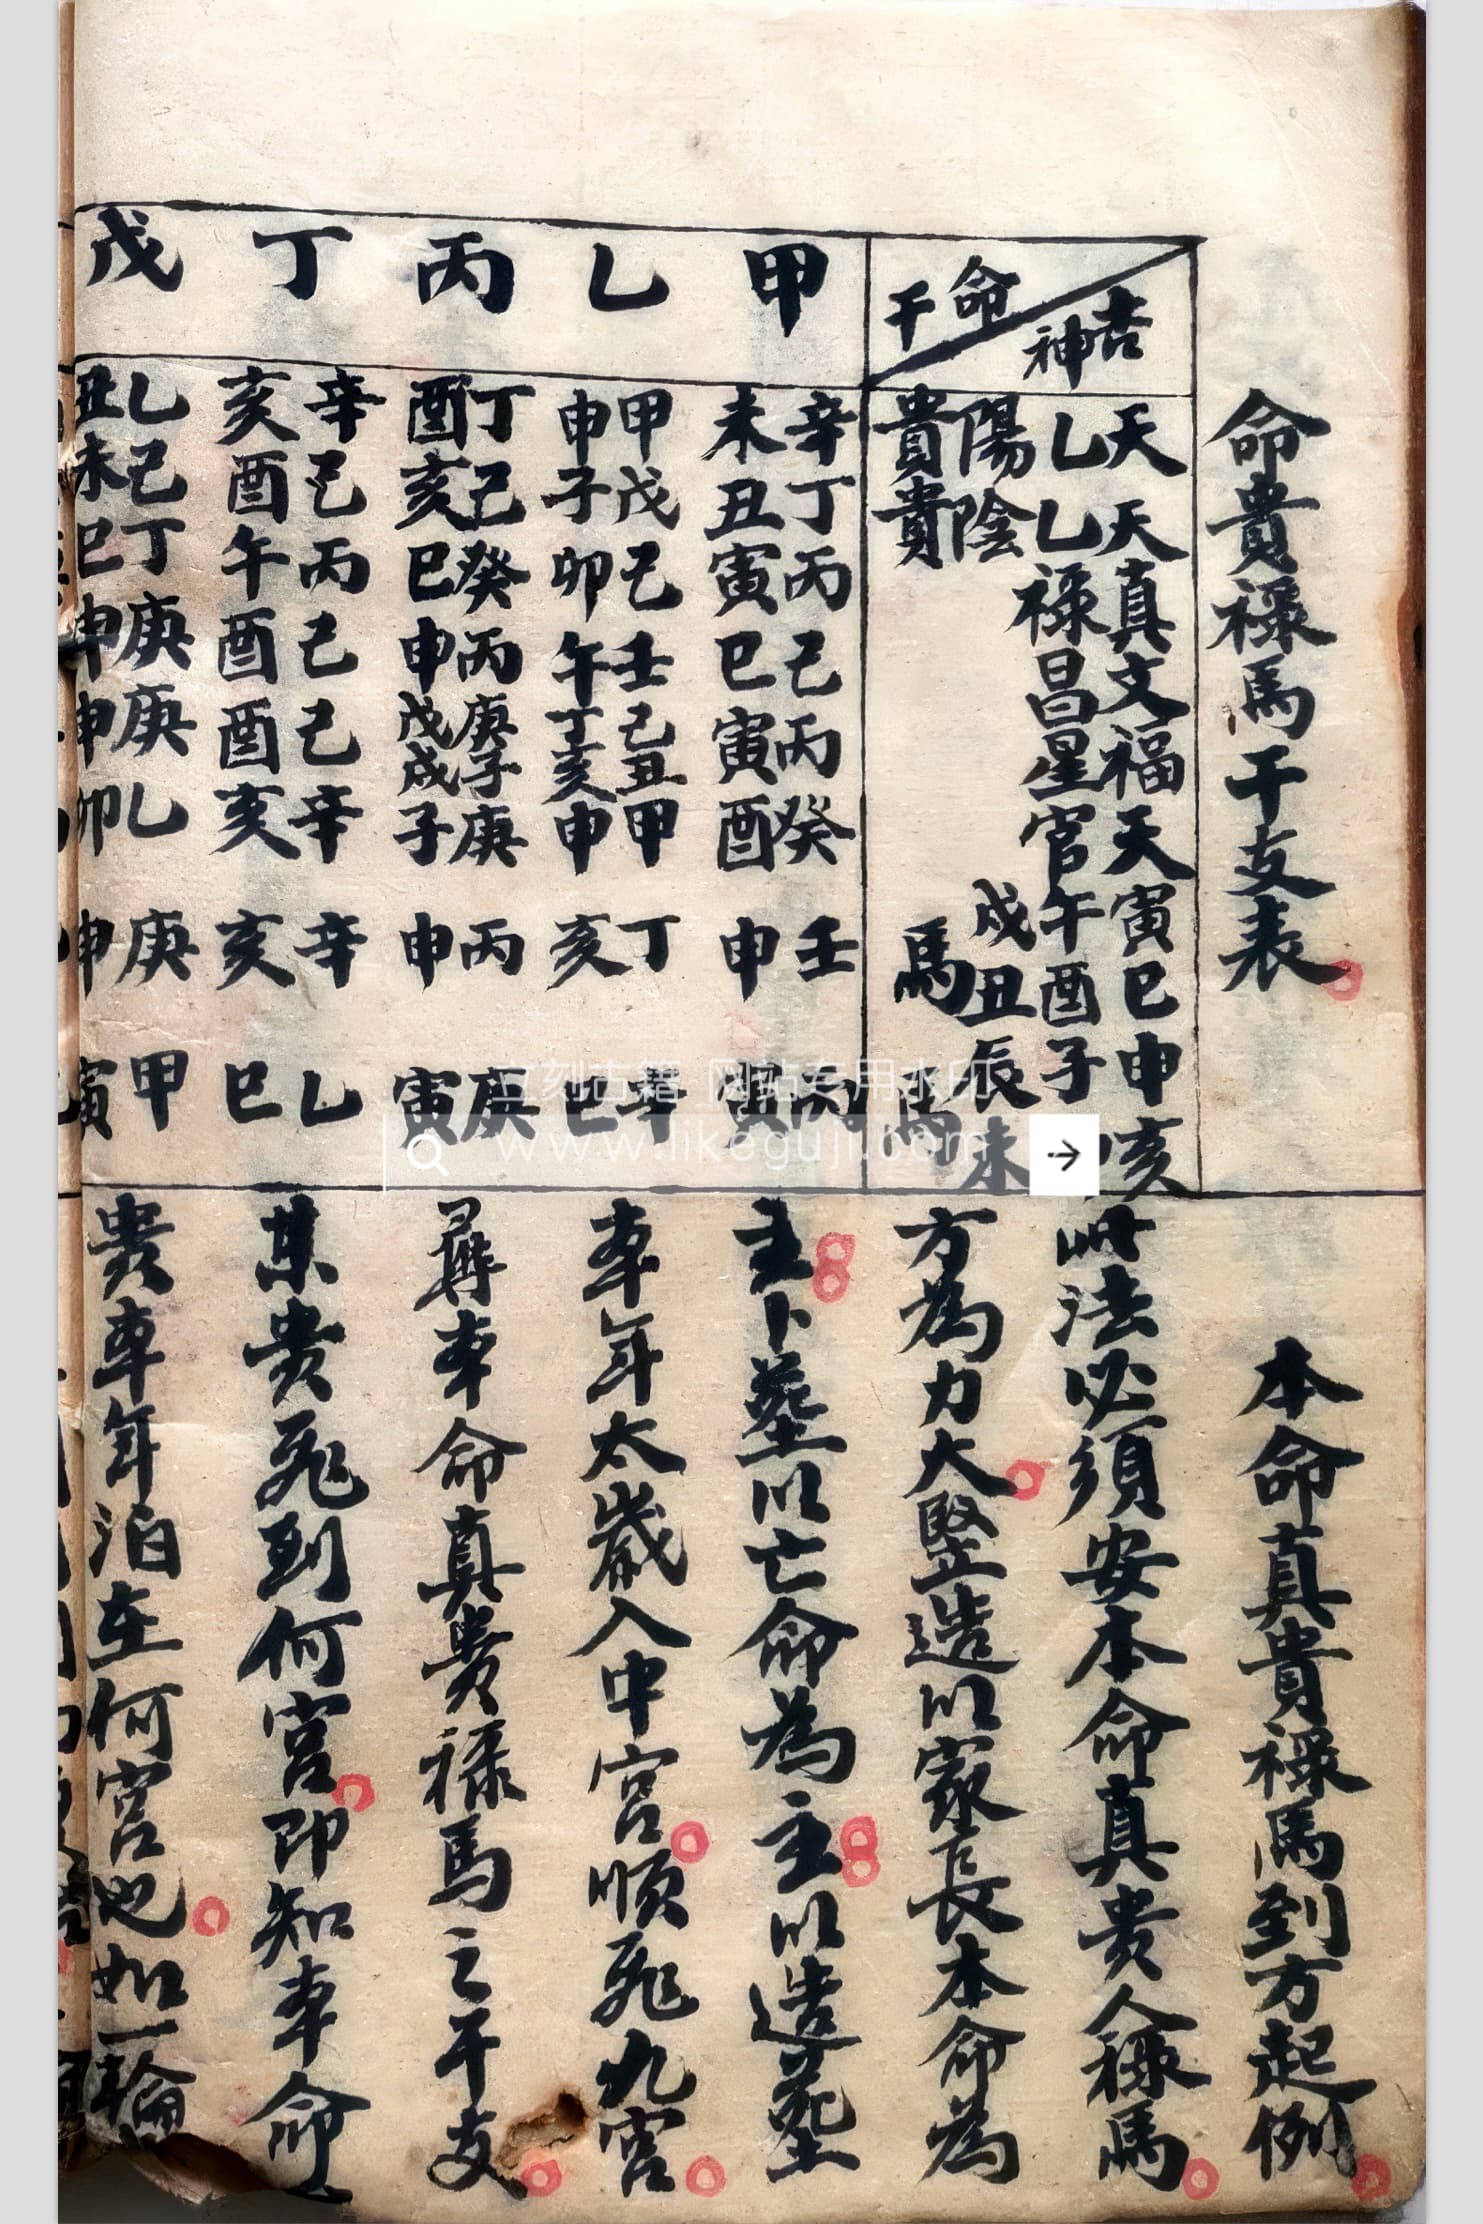 命貴祿馬干支表
吉神
命干
天乙陽貴
天乙陰貴
真祿
文昌
福星
天官
寅午戌馬
巳酉丑
申子辰馬
亥 未
甲
辛未
丁丑
丙寅
己巳
丙寅
癸酉
壬申
丙寅
乙
甲申
戊子
己卯
壬午
己丑 丁亥
甲申
丁亥
辛巳
丙
丁酉
己亥
癸巳
丙申
庚子 戊戌
庚子
丙申
庚寅
丁
辛亥
己酉
丙午
己酉
己酉
辛亥
辛亥
乙巳
戊
乙丑
己未
丁巳
庚申
庚申
乙卯
庚申
甲寅
本命真貴祿馬到方起例
此法必須安本命真貴人祿馬
方為力大竪造以家長本命為
主卜塟以亡命為主以造塟
本年太歲入中宮順飛九宮
尋本命真貴祿馬之干支
某貴飛到何宮即知本命
貴本年泊在何宮也如一輪
立刻古籍 网站专用水印
www.likeguji.com